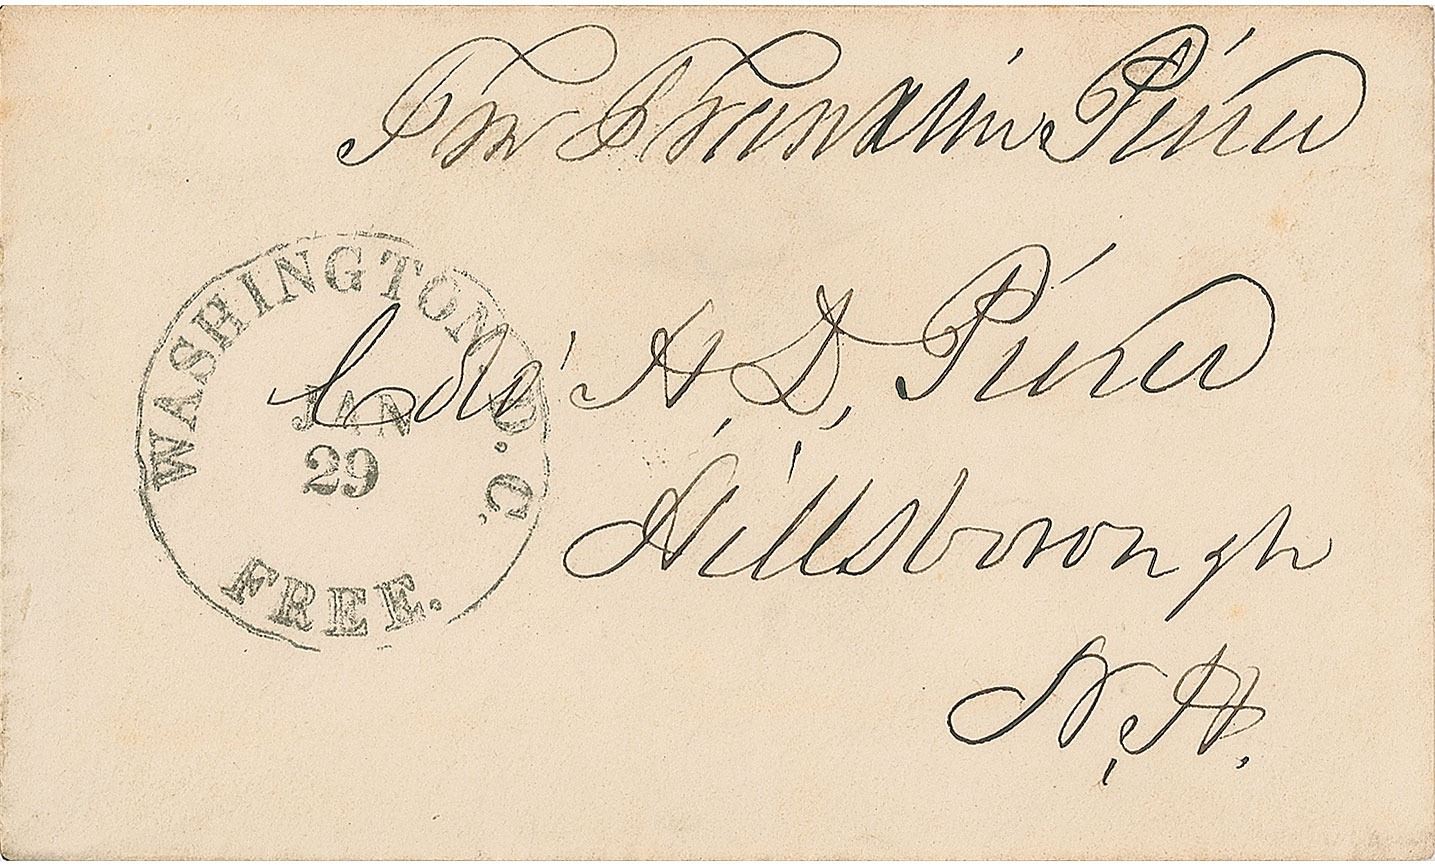 Fr Franklin Pierce
WASHINGTON D.C.
JAN
29
FREE.
Col. H. D. Pierce
Hillsborough
N. H.